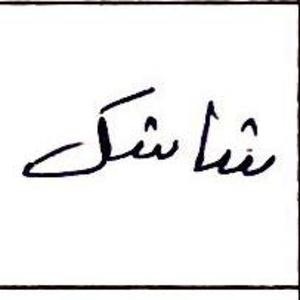 شاشک